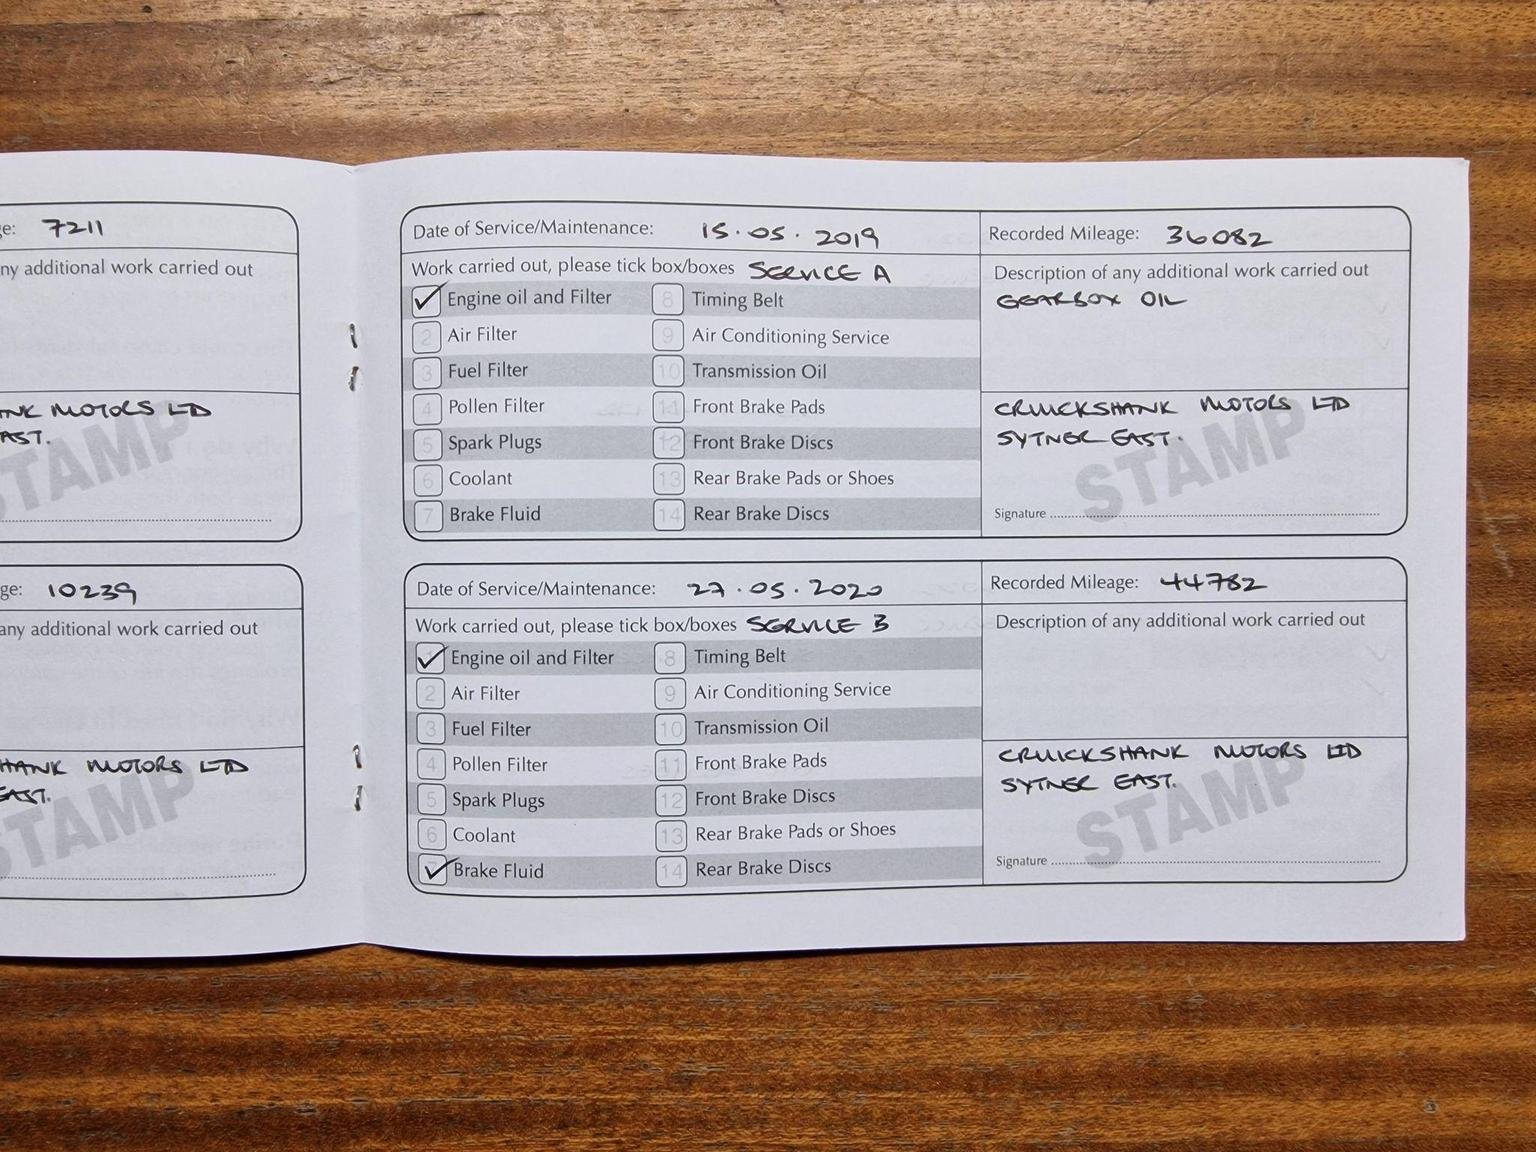 ge: 7211
ny additional work carried out
NK MOTORS LTD
AST.
STAMP
ge: 10239
any additional work carried out
HANK MOTORS LTD
EAST.
STAMP
Date of Service/Maintenance: 15.05.2019
Recorded Mileage: 36082
Work carried out, please tick box/boxes SERVICE A
Description of any additional work carried out
GEARBOX OIL
Engine oil and Filter
8 Timing Belt
2 Air Filter
9 Air Conditioning Service
3 Fuel Filter
10 Transmission Oil
4 Pollen Filter
11 Front Brake Pads
5 Spark Plugs
12 Front Brake Discs
6 Coolant
13 Rear Brake Pads or Shoes
7 Brake Fluid
14 Rear Brake Discs
CRUICKSHANK MOTORS LTD
SYTNER EAST.
STAMP
Signature
Date of Service/Maintenance: 27.05.2020
Recorded Mileage: 44782
Work carried out, please tick box/boxes SERVICE B
Description of any additional work carried out
Engine oil and Filter
8 Timing Belt
2 Air Filter
9 Air Conditioning Service
3 Fuel Filter
10 Transmission Oil
4 Pollen Filter
11 Front Brake Pads
5 Spark Plugs
12 Front Brake Discs
6 Coolant
13 Rear Brake Pads or Shoes
Brake Fluid
14 Rear Brake Discs
CRUICKSHANK MOTORS LTD
SYTNER EAST.
STAMP
Signature